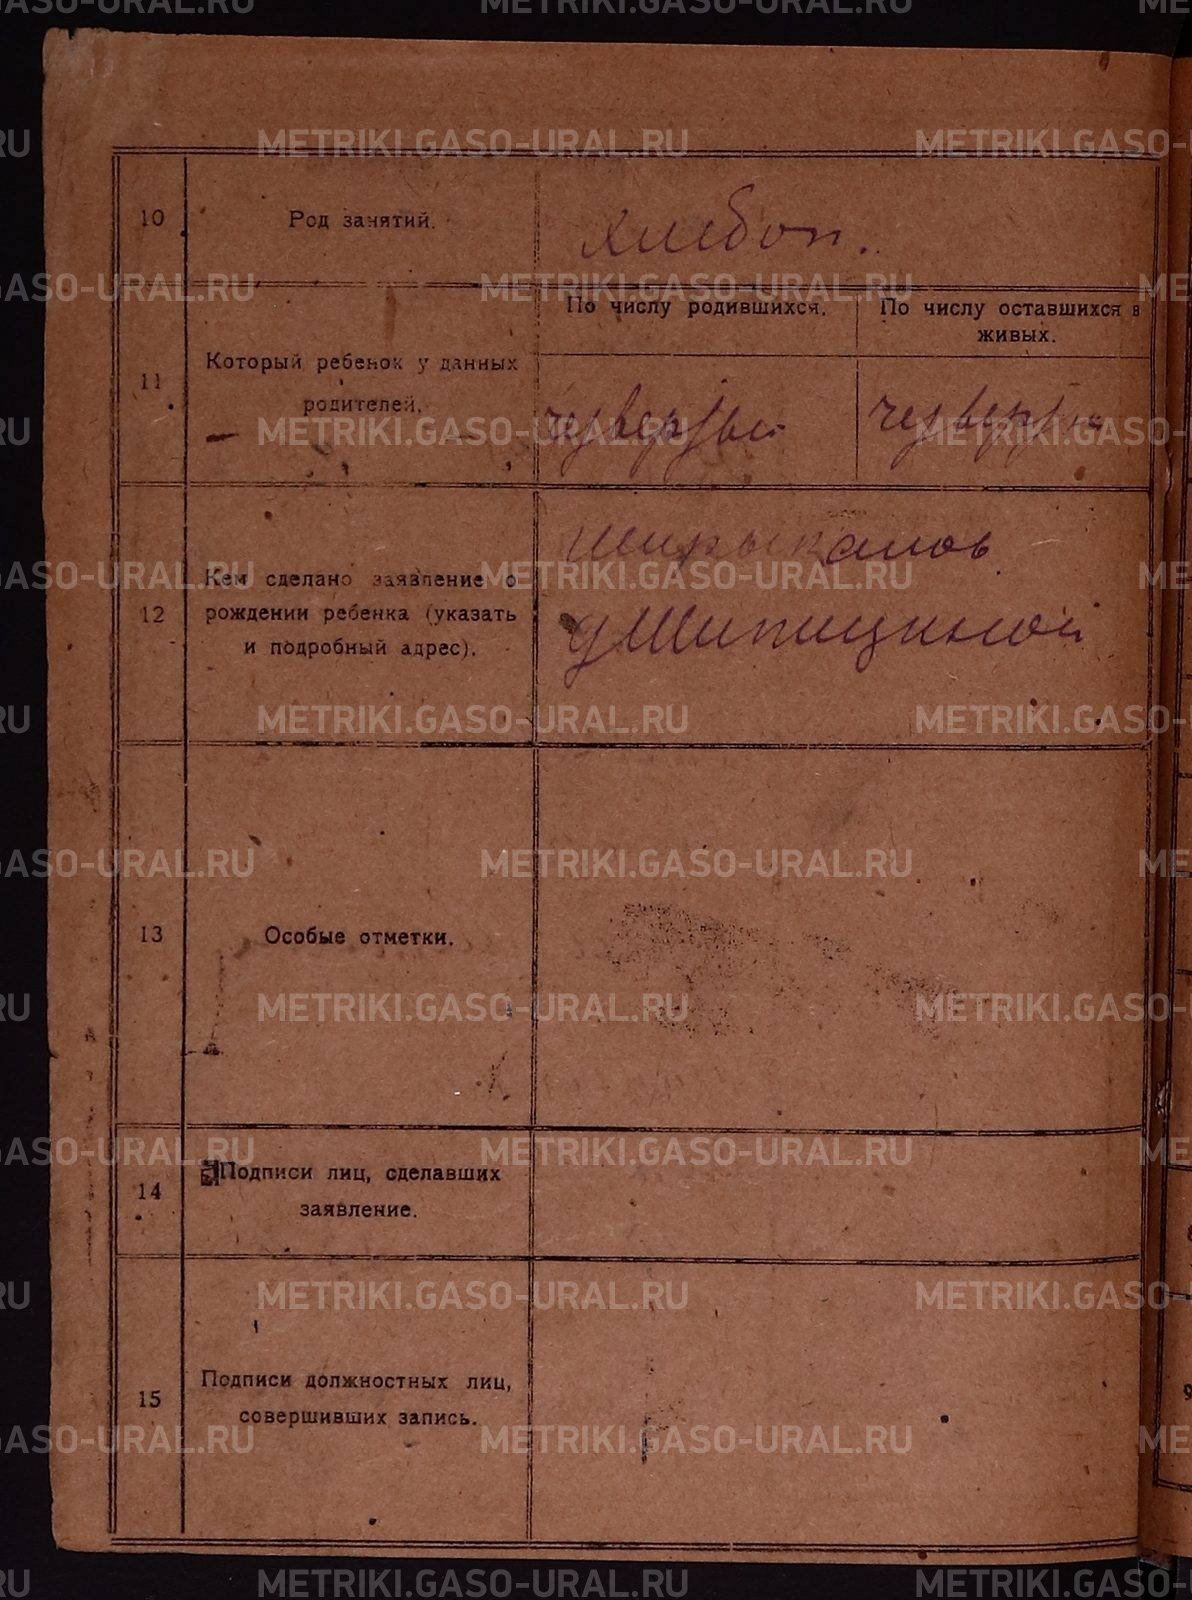 10
Род занятий.
хлебоп.
11
Который ребенок у данных
родителей.
По числу родившихся.
четвертый
По числу оставшихся в
живых.
четверты
12
Кем сделано заявление о
рождении ребенка (указать
и подробный адрес).
Ширыкалов
д Шипицыной
13
Особые отметки.
14
Подписи лиц, сделавших
заявление.
15
Подписи должностных лиц,
совершивших запись.
METRIKI.GASO-URAL.RU